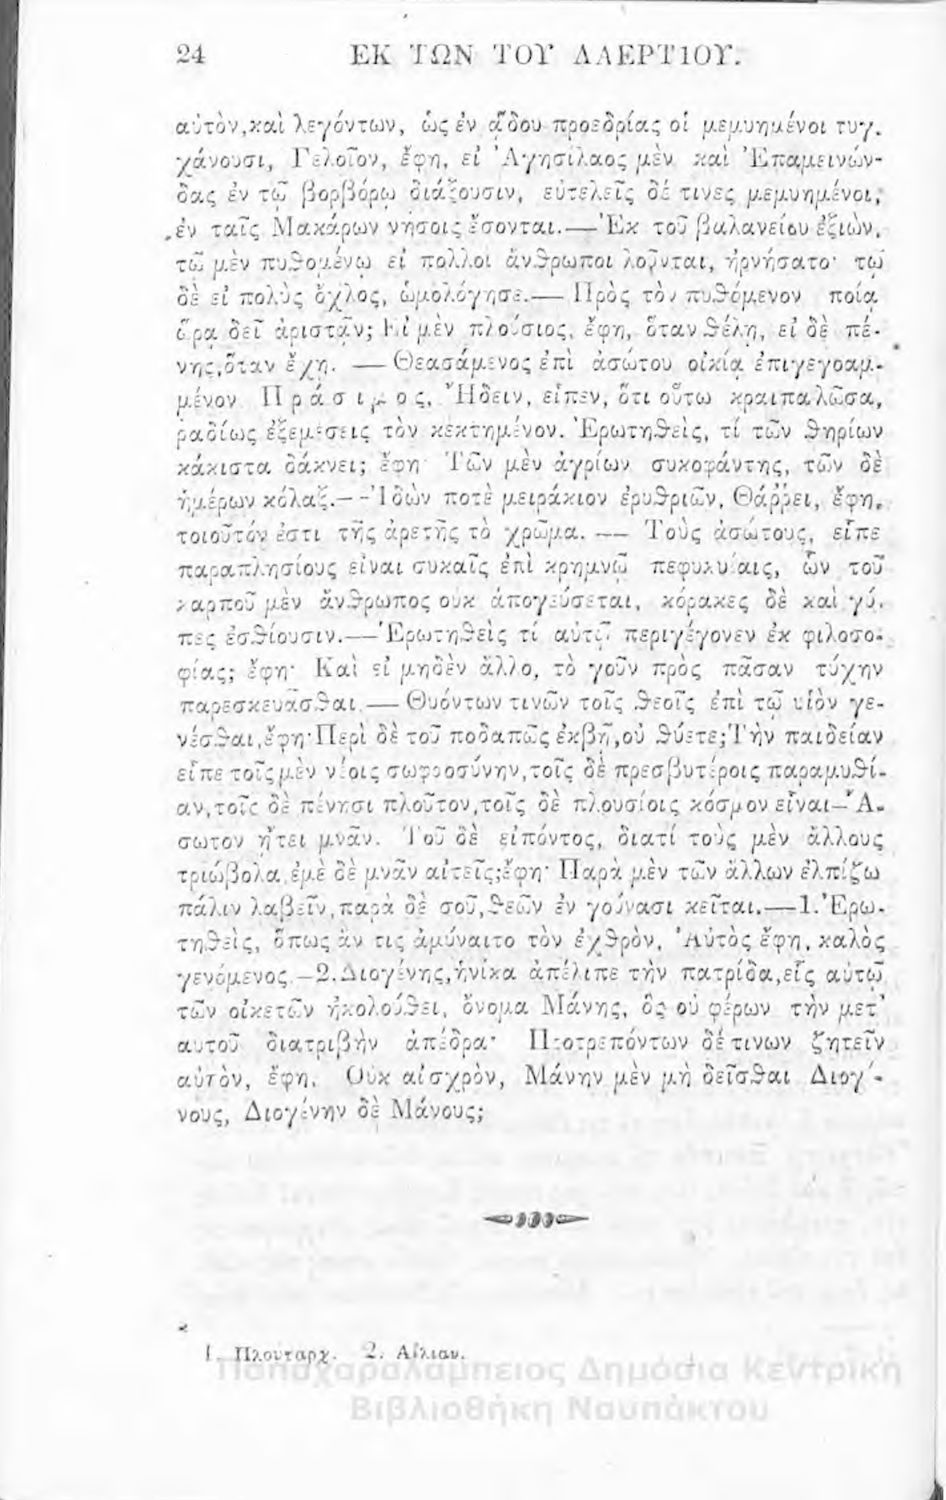 24 ΕΚ ΤΩΝ ΤΟΥ ΛΑΕΡΤΙΟΥ.
αὐτὸν, καὶ λεγόντων, ὡς ἐν ᾅδου προεδρίας οἱ μεμυημένοι τυγ-
χάνουσι, Γελοῖον, ἔφη, εἰ Ἀγησίλαος μὲν καὶ Ἐπαμεινών-
δας ἐν τῷ βορβόρῳ διάξουσιν, εὐτελεῖς δέ τινες μεμυημένοι,
ἐν ταῖς Μακάρων νήσοις ἔσονται.— Ἐκ τοῦ βαλανείου ἐξιὼν,
τῷ μὲν πυθομένῳ εἰ πολλοὶ ἄνθρωποι λοῦνται, ἠρνήσατο· τῷ
δὲ εἰ πολὺς ὄχλος, ὡμολόγησε.— Πρὸς τὸν πυθόμενον ποίᾳ
ὥρᾳ δεῖ ἀριστᾶν; Εἰ μὲν πλούσιος, ἔφη, ὅταν θέλῃ, εἰ δὲ πέ-
νης, ὅταν ἔχῃ. — Θεασάμενος ἐπὶ ἀσώτου οἰκίᾳ ἐπιγεγραμ-
μένον Π ρ ά σ ι μ ο ς, Ἤδειν, εἶπεν, ὅτι οὕτω κραιπαλῶσα,
ῥᾳδίως ἐξεμέσεις τὸν κεκτημένον. Ἐρωτηθεὶς, τί τῶν θηρίων
κάκιστα δάκνει; ἔφη· Τῶν μὲν ἀγρίων συκοφάντης, τῶν δὲ
ἡμέρων κόλαξ.— Ἰδών ποτε μειράκιον ἐρυθριῶν, Θάῤῥει, ἔφη,
τοιοῦτόν ἐστι τῆς ἀρετῆς τὸ χρῶμα. — Τοὺς ἀσώτους, εἶπε
παραπλησίους εἶναι συκαῖς ἐπὶ κρημνῷ πεφυκυίαις, ὧν τοῦ
καρποῦ μὲν ἄνθρωπος οὐκ ἀπογεύσεται, κόρακες δὲ καὶ γύ-
πες ἐσθίουσιν.— Ἐρωτηθεὶς τί αὐτῷ περιγέγονεν ἐκ φιλοσο-
φίας; ἔφη· Καὶ εἰ μηδὲν ἄλλο, τὸ γοῦν πρὸς πᾶσαν τύχην
παρεσκευάσθαι.— Θυόντων τινῶν τοῖς θεοῖς ἐπὶ τῷ υἱὸν γε-
νέσθαι, ἔφη· Περὶ δὲ τοῦ ποδαπῶς ἐκβῇ, οὐ θύετε; Τὴν παιδείαν
εἶπε τοῖς μὲν νέοις σωφροσύνην, τοῖς δὲ πρεσβυτέροις παραμυθί-
αν, τοῖς δὲ πένησι πλοῦτον, τοῖς δὲ πλουσίοις κόσμον εἶναι— Ἄ-
σωτον ᾔτει μνᾶν. Τοῦ δὲ εἰπόντος, διατί τοὺς μὲν ἄλλους
τριώβολα, ἐμὲ δὲ μνᾶν αἰτεῖς; ἔφη· Παρὰ μὲν τῶν ἄλλων ἐλπίζω
πάλιν λαβεῖν, παρὰ δὲ σοῦ, θεῶν ἐν γούνασι κεῖται.—1. Ἐρω-
τηθεὶς, ὅπως ἄν τις ἀμύναιτο τὸν ἐχθρὸν, Αὐτὸς ἔφη, καλὸς
γενόμενος.—2. Διογένης, ἡνίκα ἀπέλιπε τὴν πατρίδα, εἷς αὐτῷ
τῶν οἰκετῶν ἠκολούθει, ὄνομα Μάνης, ὃς οὐ φέρων τὴν μετ᾽
αὐτοῦ διατριβὴν ἀπέδρα· Προτρεπόντων δέ τινων ζητεῖν
αὐτὸν, ἔφη, Οὐκ αἰσχρὸν, Μάνην μὲν μὴ δεῖσθαι Διογέ-
νους, Διογένην δὲ Μάνους;
1. Πλούταρχ. 2. Αἴλιαν.
Παπαχαραλάμπειος Δημόσια Κεντρική
Βιβλιοθήκη Ναυπάκτου